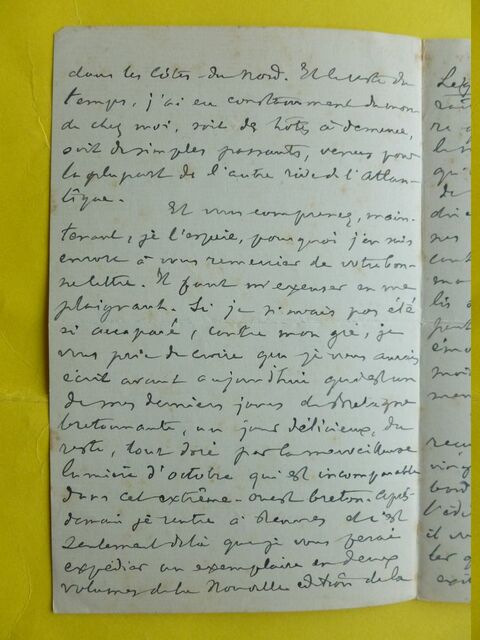 dans les Côtes-du-Nord. Et le reste du
temps, j'ai eu constamment du monde
chez moi, soit des hôtes à demeure,
soit de simples passants, venus pour
la plupart de l'autre rive de l'Atlan-
tique.
Et vous comprenez, main-
tenant, je l'espère, pourquoi j'en suis
encore à vous remercier de votre bon-
ne lettre. Il faut m'excuser en me
plaignant. Si je n'avais pas été
si accaparé, contre mon gré, je
vous prie de croire que je vous aurais
écrit avant aujourd'hui qui est un
de mes derniers jours de Bretagne
bretonnante, un jour délicieux, du
reste, tout doré par la merveilleuse
lumière d'octobre qui est incomparable
dans cet extrême-ouest breton. Après-
demain je rentre à Rennes et c'est
seulement de là que je vous ferai
expédier un exemplaire en deux
volumes de la Nouvelle édition de la